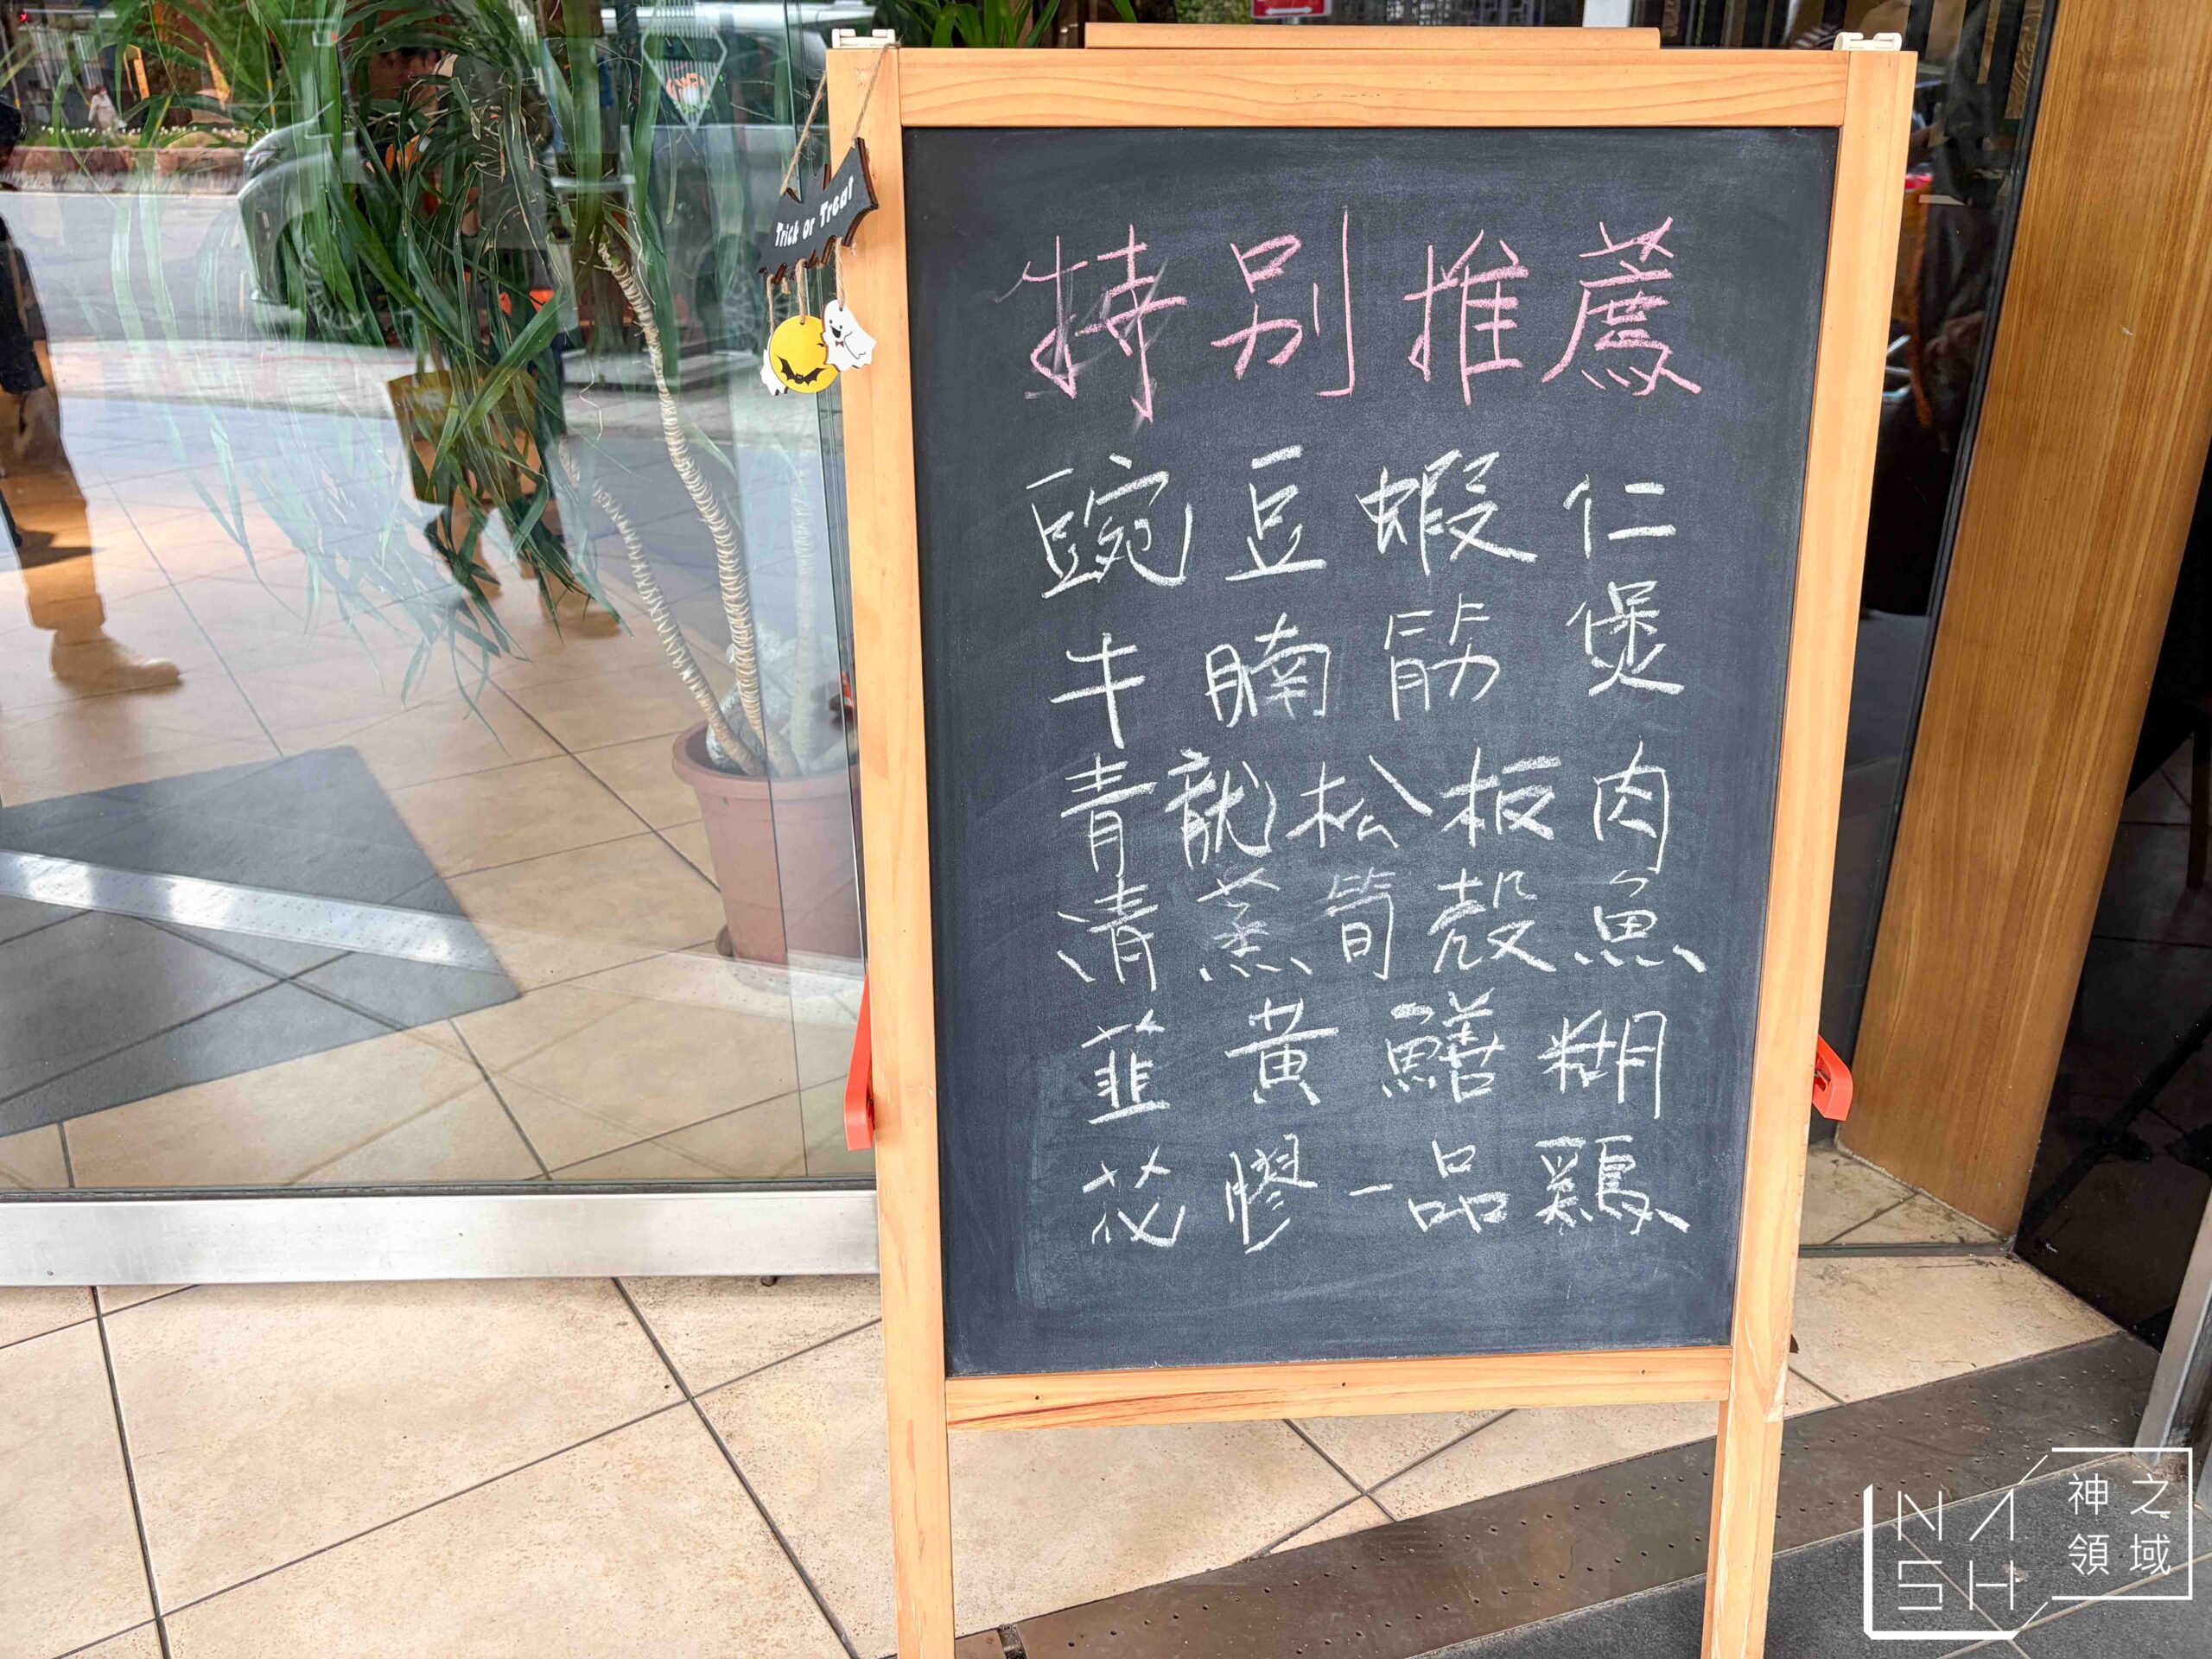 Trick or Treat
特別推薦
豌豆蝦仁
牛腩筋煲
青龍松板肉
清蒸筍殼魚
韮黃鱔糊
花膠一品雞
NASH
神之領域